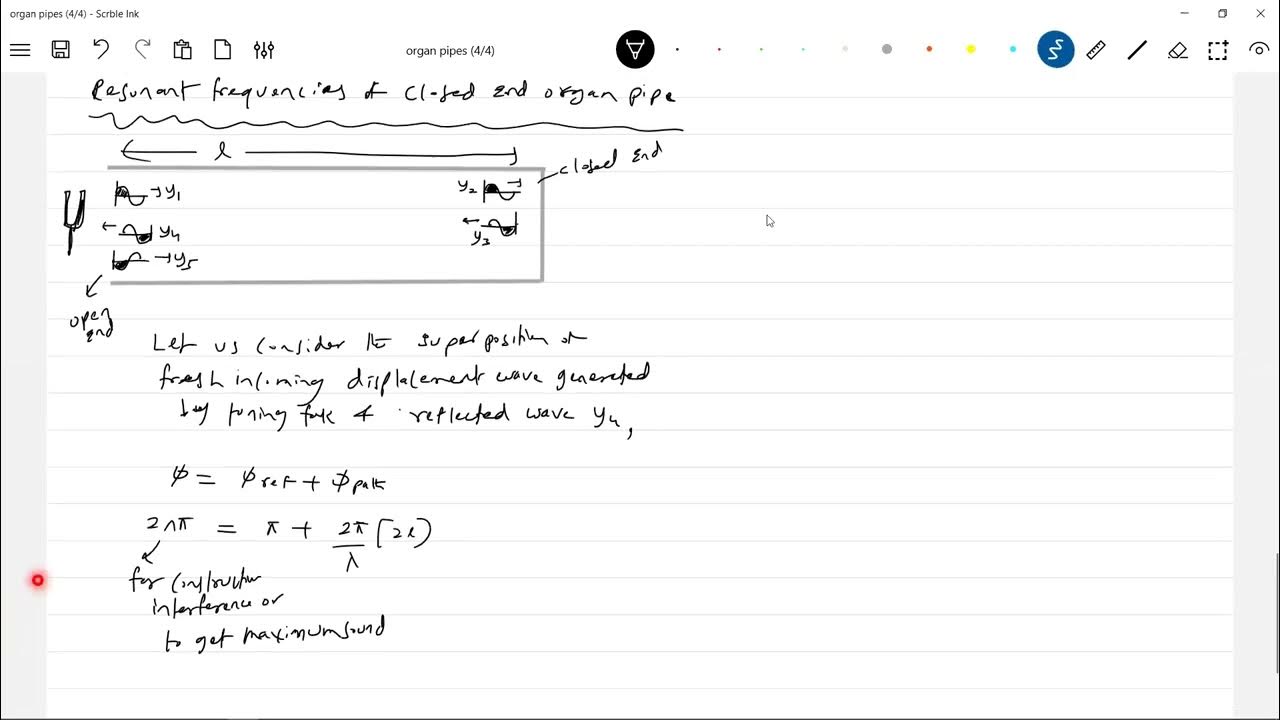 organ pipes (4/4) - Scrble Ink
organ pipes (4/4)
Resonant frequencies of closed end organ pipe
l
closed end
y1
y2
y4
y3
y5
open
end
Let us consider the superposition of
fresh incoming displacement wave generated
by tuning fork & reflected wave y4,
φ = φref + φpath
2nπ = π + 2π/λ [2l)
for constructive
interference or
to get maximum sound